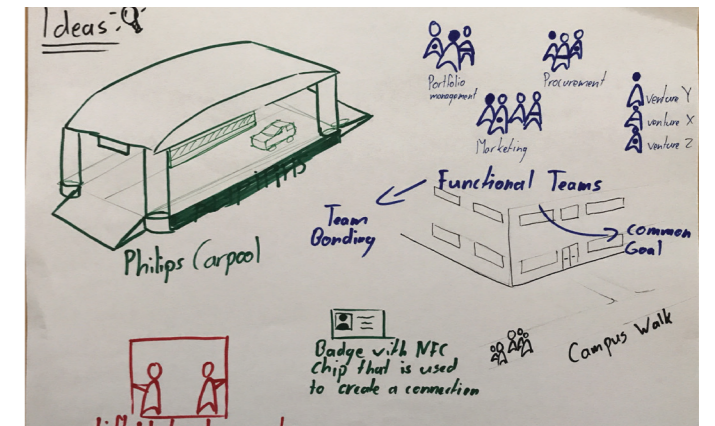 Ideas:
Portfolio
management
Procurement
Marketing
venture Y
venture X
venture Z
Functional Teams
Team
Bonding
common
Goal
Philips Carpool
Badge with NFC
chip that is used
to create a connection
Campus Walk